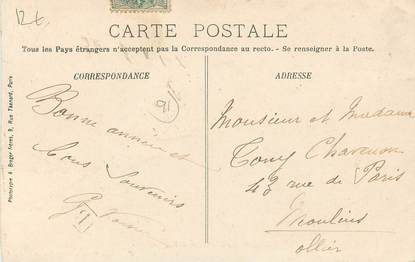 12€
CARTE POSTALE
Tous les Pays étrangers n'acceptent pas la Correspondance au recto. - Se renseigner à la Poste.
CORRESPONDANCE
Bonne année et
bons Souvenirs
G.
91
ADRESSE
Monsieur et Madame
Tony
43 rue de Paris
Moulins
Allier
Phototypie A. Breger Frères, 9, Rue Thénard, Paris